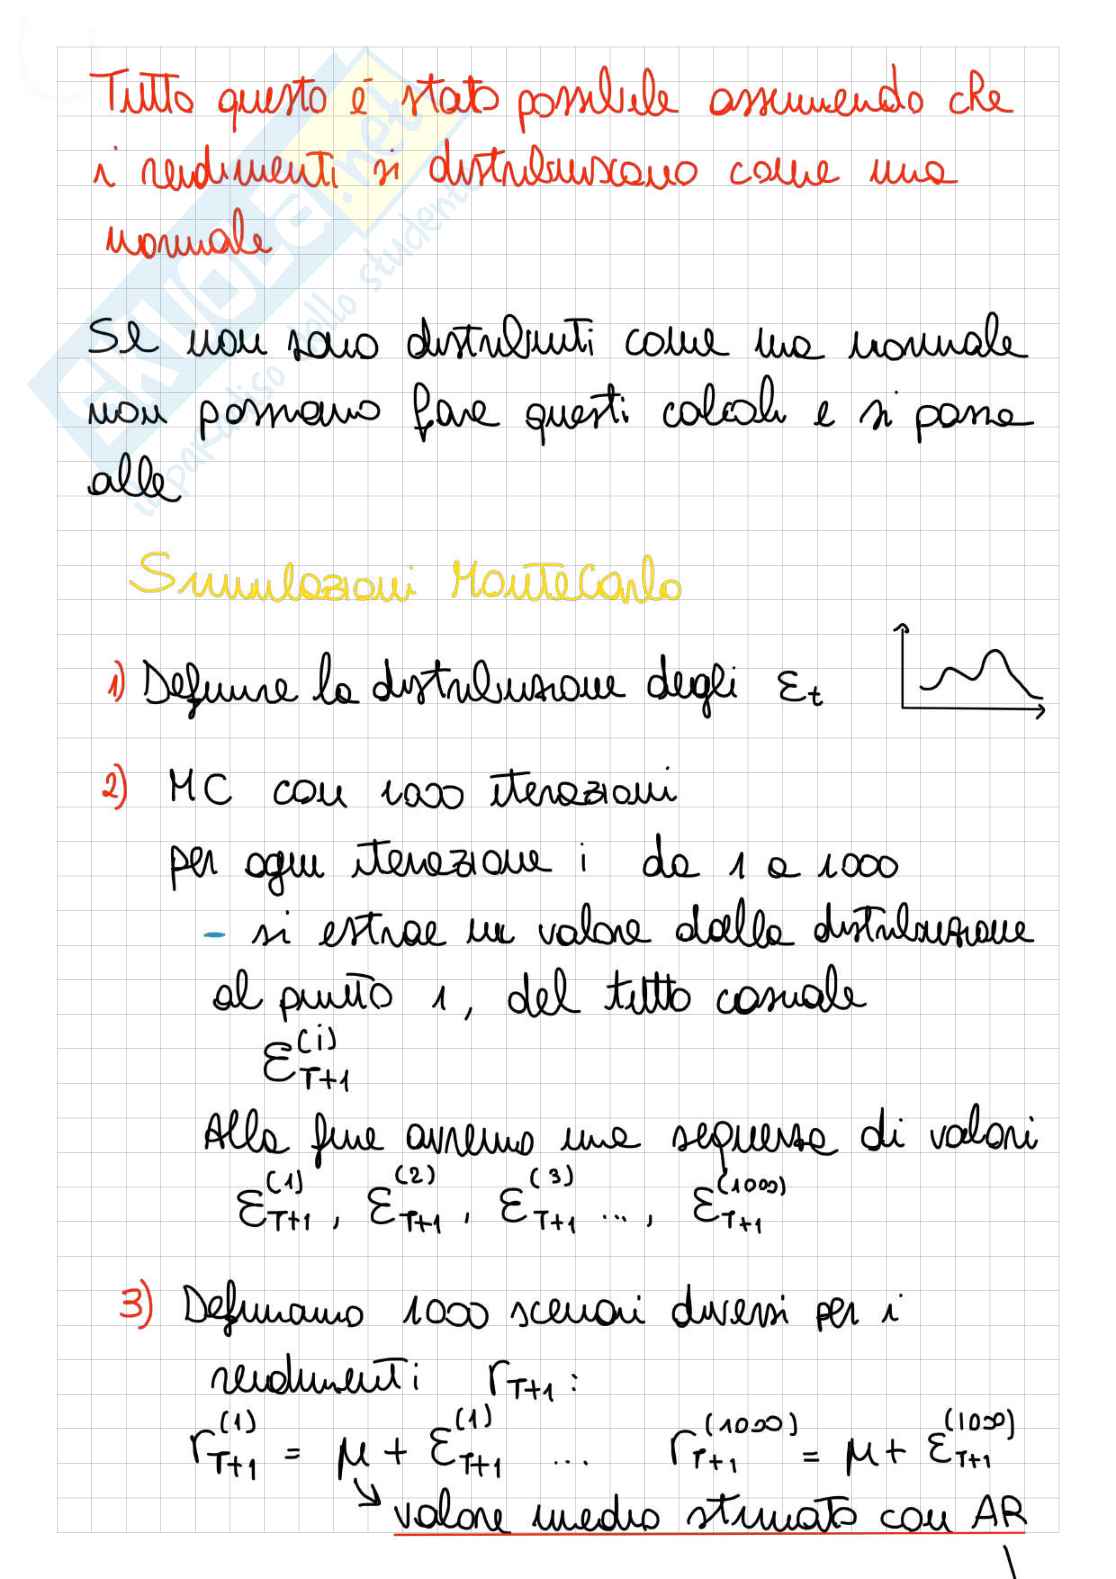 Tutto questo è stato possibile assumendo che
i rendimenti si distribuiscano come una
normale
Se non sono distribuiti come una normale
non possiamo fare questi calcoli e si passa
alle
Simulazioni MonteCarlo
1) Definire la distribuzione degli εt
2) MC con 1000 iterazioni
per ogni iterazione i da 1 a 1000
- si estrae un valore dalla distribuzione
al punto 1, del tutto casuale
ε_{T+1}^{(i)}
Alla fine avremo una sequenza di valori
ε_{T+1}^{(1)}, ε_{T+1}^{(2)}, ε_{T+1}^{(3)} ..., ε_{T+1}^{(1000)}
3) Definiamo 1000 scenari diversi per i
rendimenti r_{T+1}:
r_{T+1}^{(1)} = μ + ε_{T+1}^{(1)} ... r_{T+1}^{(1000)} = μ + ε_{T+1}^{(1000)}
valore medio stimato con AR
SKUOLA.net
il paradiso dello studente